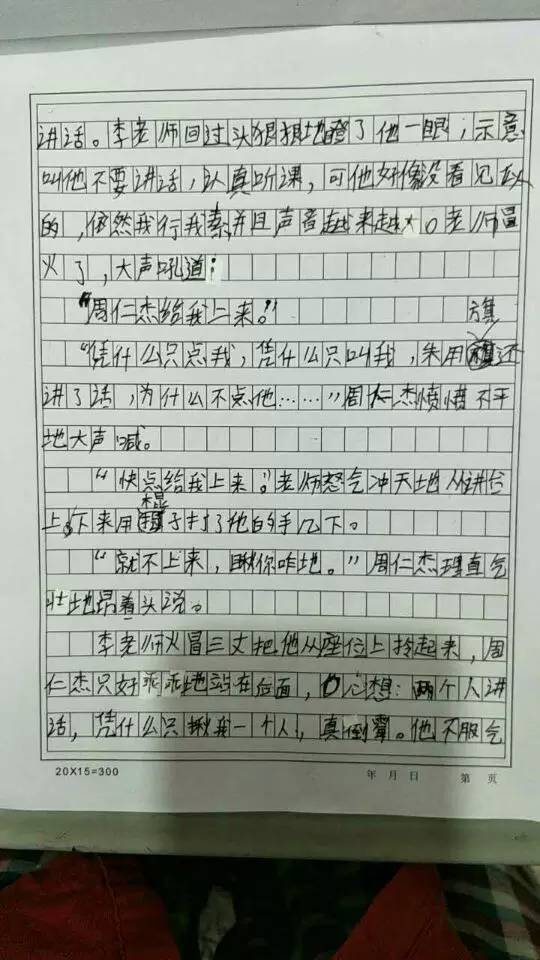 讲话。李老师回过头狠狠地瞪了他一眼；示意
叫他不要讲话，认真听课，可他好像没看见似
的，依然我行我素，并且声音越来越大。老师冒
火了，大声吼道：
“周仁杰给我上来。”
旗
“凭什么只点我，凭什么只叫我，朱用还
讲了话，为什么不点他……”周仁杰愤愤不平
地大声喊。
“快点给我上来”老师怒气冲天地从讲台
棍
上下来用子打了他的手几下。
“就不上来，瞅你咋地。”周仁杰理直气
壮地昂着头说。
李老师火冒三丈把他从座位上拎起来，周
仁杰只好乖乖地站在后面，心想：两个人讲
话，凭什么只揪我一个人，真倒霉。他不服气
20X15=300 年 月 日 第 页